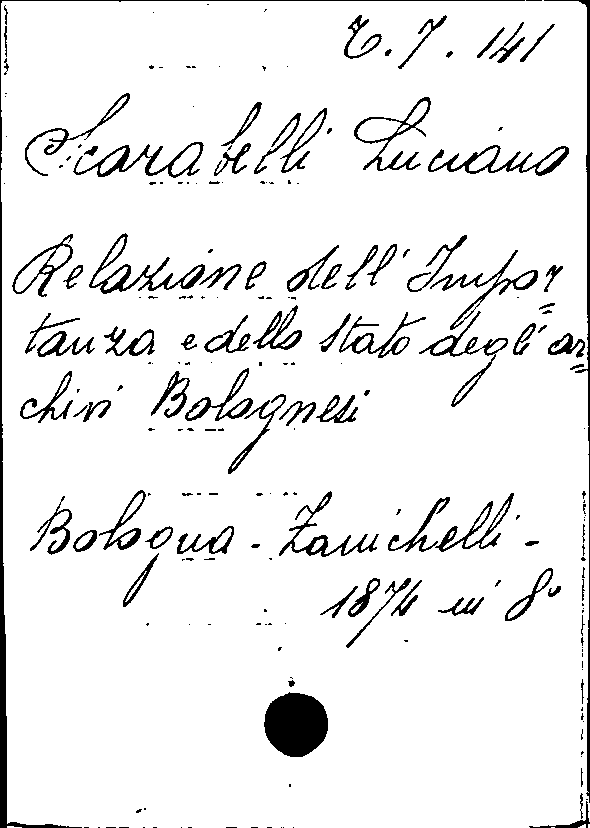 C. 7. 141
Scarabelli Luciano
Relazione dell' Impor=
tanza e dello stato degli ar=
chivi Bolognesi
Bologna - Zanichelli -
1874 in 8°